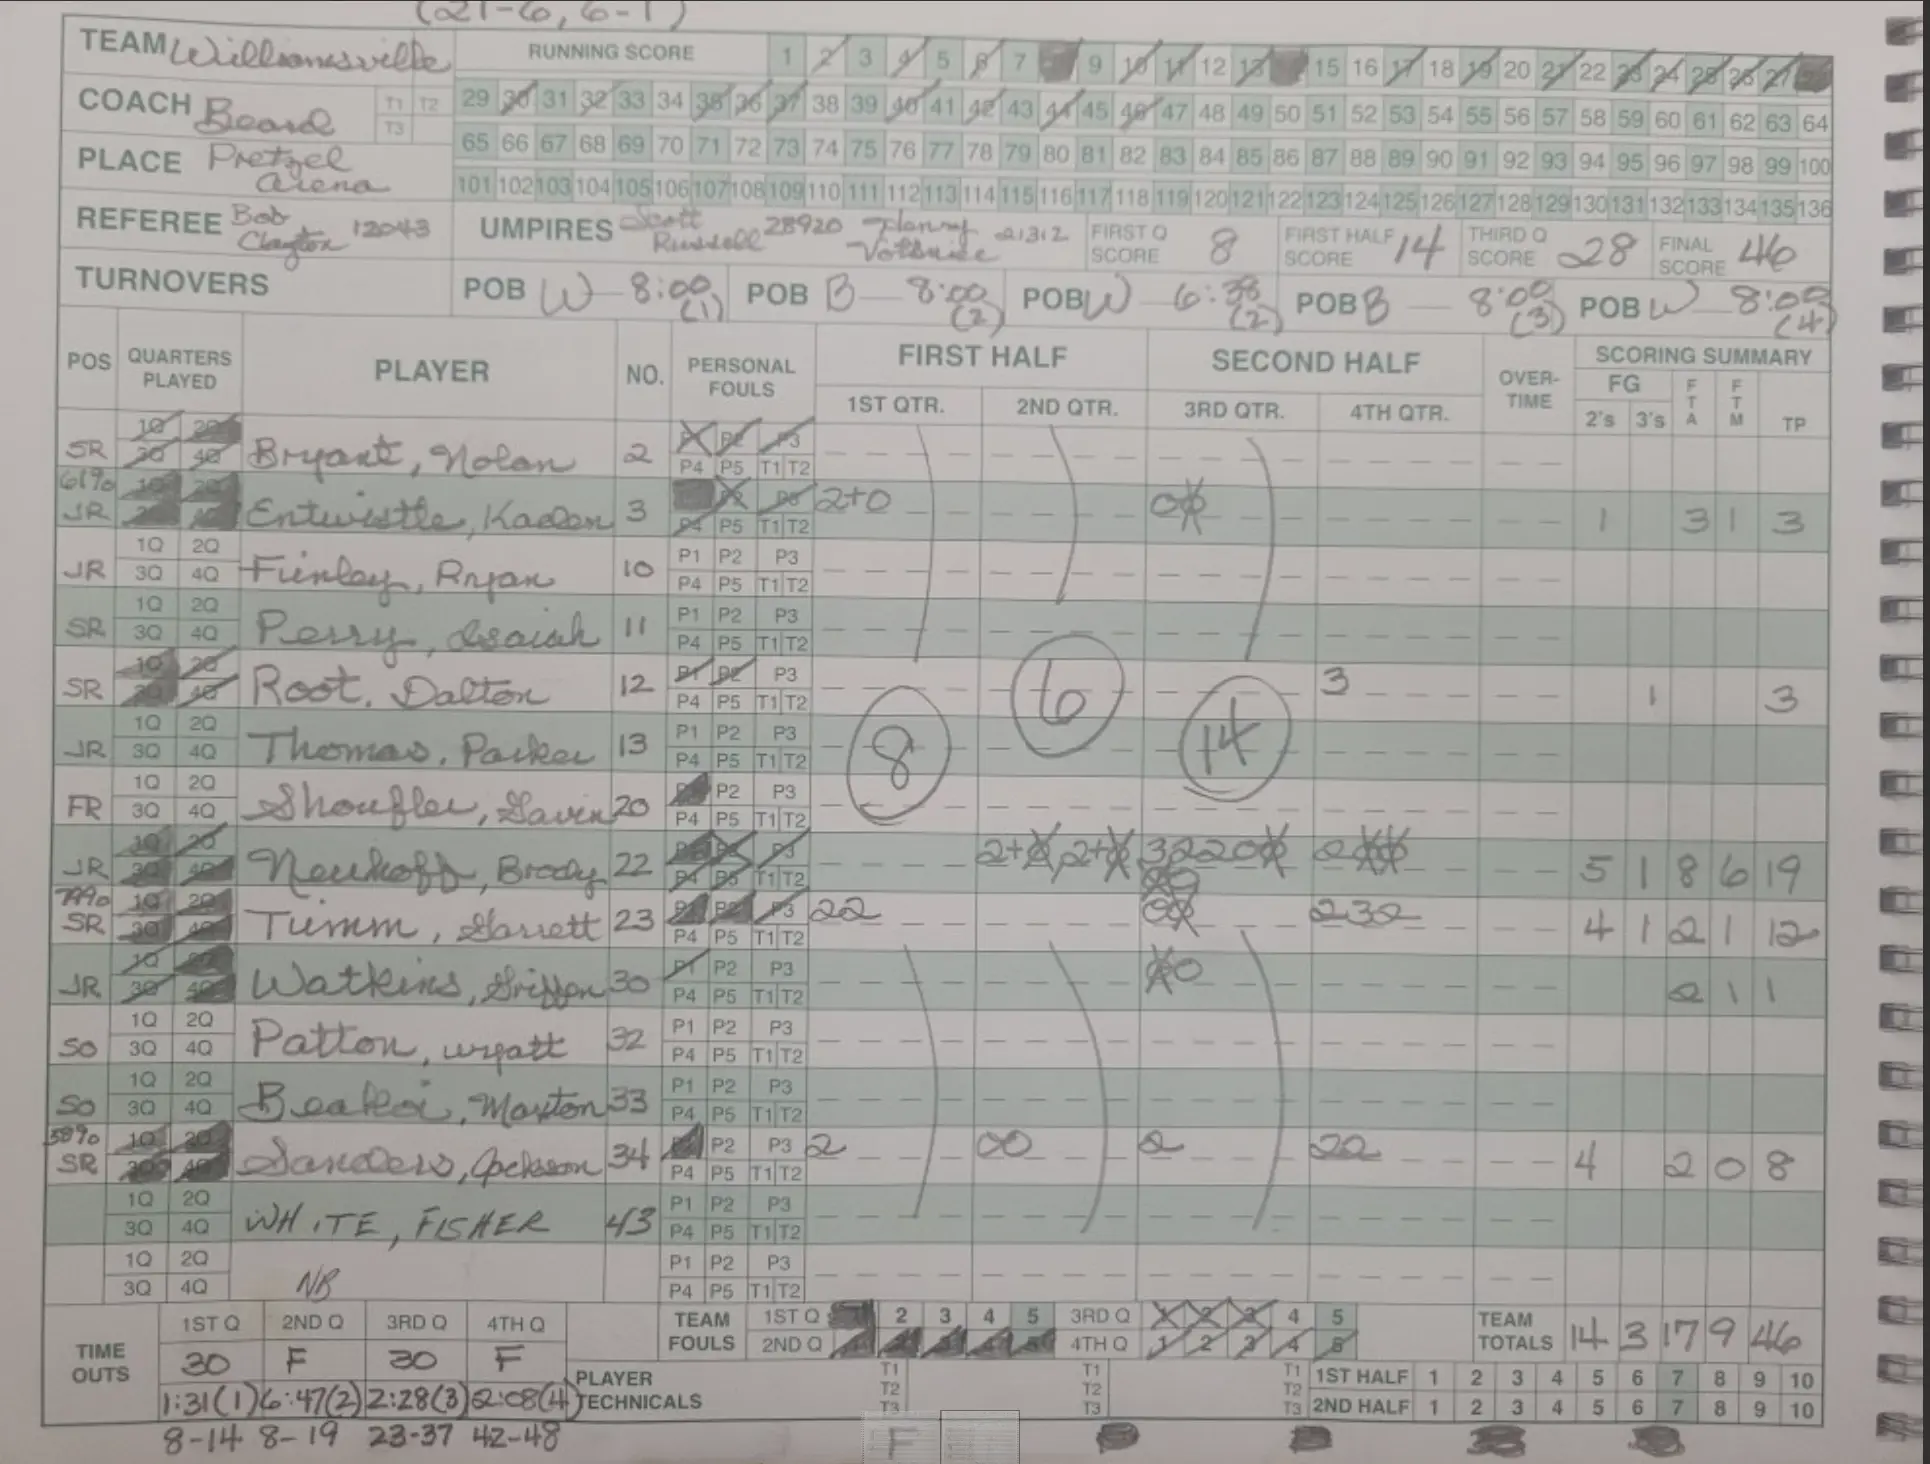 (21-6, 6-1)
TEAM Williamsville RUNNING SCORE 1 2 3 4 5 6 7 9 10 11 12 13 15 16 17 18 19 20 21 22 23 24 25 26 27
COACH Beard T1 T2 T3 29 30 31 32 33 34 35 36 37 38 39 40 41 42 43 44 45 46 47 48 49 50 51 52 53 54 55 56 57 58 59 60 61 62 63 64
PLACE Pretzel Arena 65 66 67 68 69 70 71 72 73 74 75 76 77 78 79 80 81 82 83 84 85 86 87 88 89 90 91 92 93 94 95 96 97 98 99 100
101 102 103 104 105 106 107 108 109 110 111 112 113 114 115 116 117 118 119 120 121 122 123 124 125 126 127 128 129 130 131 132 133 134 135 136
REFEREE Bob Clayton 12043 UMPIRES Scott Russell 28920 21312 FIRST Q SCORE 8 FIRST HALF SCORE 14 THIRD Q SCORE 28 FINAL SCORE 46
TURNOVERS POB W 8:00 (1) POB B 8:00 (2) POB W 6:38 (2) POB B 8:00 (3) POB W 8:00 (4)
POS QUARTERS PLAYED PLAYER NO. PERSONAL FOULS FIRST HALF SECOND HALF OVER-TIME SCORING SUMMARY
1ST QTR. 2ND QTR. 3RD QTR. 4TH QTR. FG 2's 3's FTA FTM TP
SR 1Q 2Q 3Q 4Q Bryant, Nolan 2 P2 P3 P4 P5 T1 T2
61% JR Entwistle, Kaden 3 P2 P3 P4 P5 T1 T2 2+0 1 3 1 3
JR 1Q 2Q 3Q 4Q Finley, Ryan 10 P1 P2 P3 P4 P5 T1 T2
SR 1Q 2Q 3Q 4Q Perry, Isaiah 11 P1 P2 P3 P4 P5 T1 T2
SR 1Q 2Q 3Q 4Q Root, Dalton 12 P1 P2 P3 P4 P5 T1 T2 3 1 3
JR 1Q 2Q 3Q 4Q Thomas, Parker 13 P1 P2 P3 P4 P5 T1 T2
FR 1Q 2Q 3Q 4Q Shoufler, Gavin 20 P2 P3 P4 P5 T1 T2
8 6 14
JR 1Q 2Q 3Q 4Q Neuhoff, Brody 22 P3 P4 P5 T1 T2 5 1 8 6 19
SR 1Q 2Q 3Q 4Q Timm, Garrett 23 P3 P4 P5 T1 T2 22 232 4 1 2 1 12
JR 1Q 3Q 4Q Watkins, Griffen 30 P1 P2 P3 P4 P5 T1 T2 2 1 1
SO 1Q 2Q 3Q 4Q Patton, wyatt 32 P1 P2 P3 P4 P5 T1 T2
SO 1Q 2Q 3Q 4Q 33 P1 P2 P3 P4 P5 T1 T2
SR 1Q 2Q 3Q 4Q Sanders, Jackson 34 P2 P3 P4 P5 T1 T2 2 00 2 22 4 2 0 8
1Q 2Q 3Q 4Q WHITE, FISHER 43 P1 P2 P3 P4 P5 T1 T2
1Q 2Q 3Q 4Q NB P1 P2 P3 P4 P5 T1 T2
TIME OUTS 1ST Q 2ND Q 3RD Q 4TH Q TEAM FOULS 1ST Q 2 3 4 5 3RD Q 1 2 3 4 5 TEAM TOTALS 14 3 17 9 46
30 F 30 F 2ND Q 4TH Q 1 2 3 4 5
1:31(1) 6:47(2) 2:28(3) 2:08(4) PLAYER TECHNICALS T1 T2 T3 T1 T2 T3 T1 T2 T3 1ST HALF 1 2 3 4 5 6 7 8 9 10
2ND HALF 1 2 3 4 5 6 7 8 9 10
8-14 8-19 23-37 42-48 F